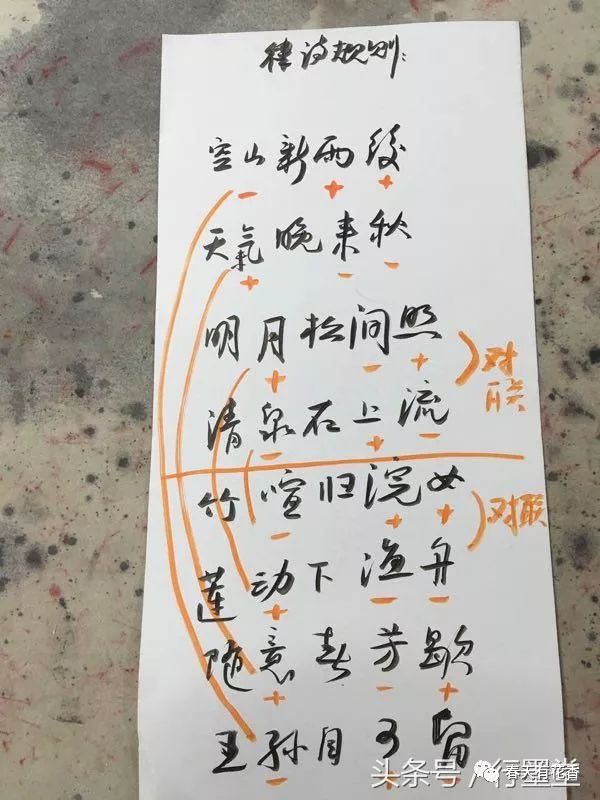 律诗规则:
空山新雨後
- + +
天氣晚来秋
+ - -
明月松间照
+ - +
对联
清泉石上流
- + -
竹喧归浣女
- + +
对联
莲动下渔舟
+ - -
随意春芳歇
+ - +
王孙自可留
- + -
头条号/行墨堂
春天有花香